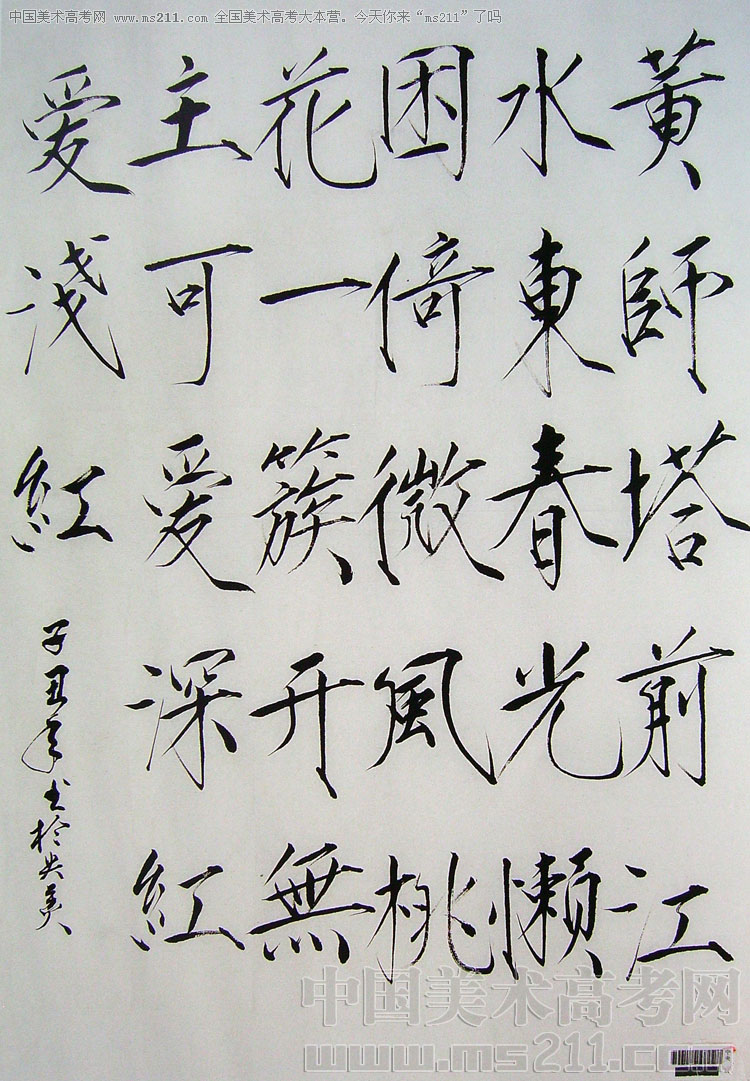 中国美术高考网 www.ms211.com 全国美术高考大本营。今天你来“ms211”了吗
黄師塔前江
水東春光懒
困倚微風桃
花一簇开無
主可爱深紅
爱浅紅
子丑年书於央美
中国美术高考网
www.ms211.com